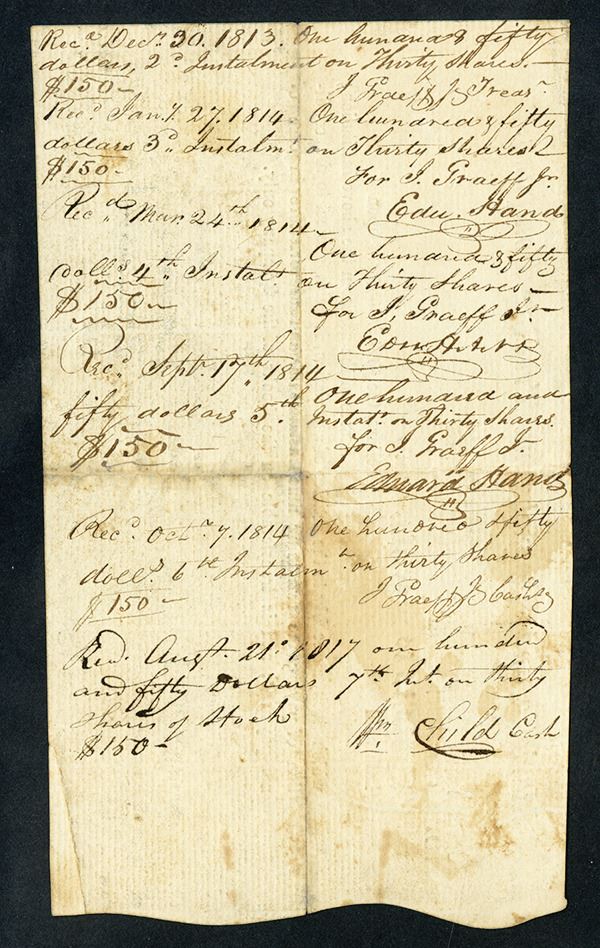 Rec.d Dec.r 30. 1813. One hundred & fifty
dollars, 2.d Instalment on Thirty Shares.—
$150— J Graeff Jr Treas.r
Rec.d Jan.y 27. 1814. One hundred & fifty
dollars 3.d Instalm.t on Thirty Shares
$150— For J. Graeff Jr.
Edw. Hand
Rec.d Mar. 24th 1814—
One hundred & fifty
doll.s 4th Instal.t on Thirty Shares—
$150— for J. Graeff Jr—
Edw Hand
Rec.d Sept.r 17th 1814—
One hundred and
fifty dollars 5.th Instal.t on Thirty Shares.
$150— for J. Graeff J.r
Edward Hand
Rec.d Oct.r 7. 1814 One hundred & fifty
doll.s 6th Instalm.t on thirty Shares
$150— J Graeff Jr Cash.r
Rec.d Augt. 21.st 1817 one hundred
and fifty Dollars 7th Int. on thirty
Shares of Stock
$150— Wm Child Cash